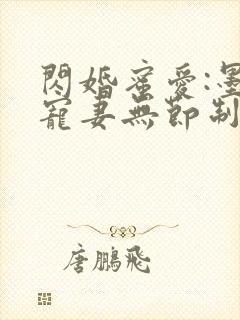 閃婚蜜愛:墨
寵妻無節制
唐鵬飛